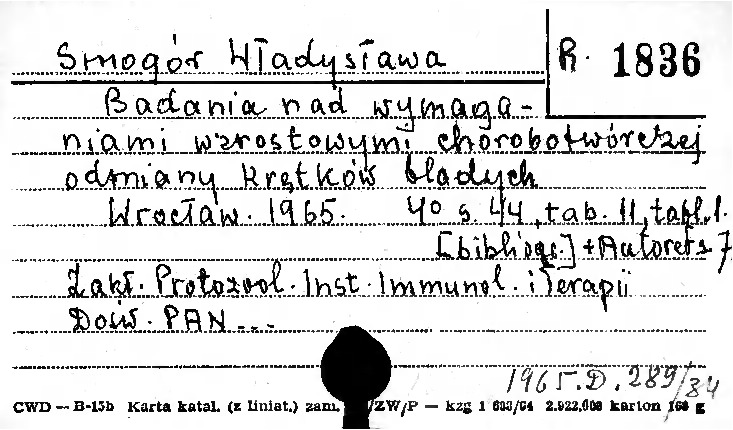 Smogór Władysława R. 1836
Badania nad wymaga-
niami wzrostowymi chorobotwórczej
odmiany krętków bladych
Wrocław. 1965. 4° s. 44, tab. 11, tabl. 1.
[bibliogr.] + Autoref. s. 7
Zakł. Protozool. Inst. Immunol. i Terapii
Dośw. PAN...
1965.D.289/84
CWD — B-15b Karta katal. (z liniat.) zam. /ZW/P — kzg 1 2.922,000 karton 160 g